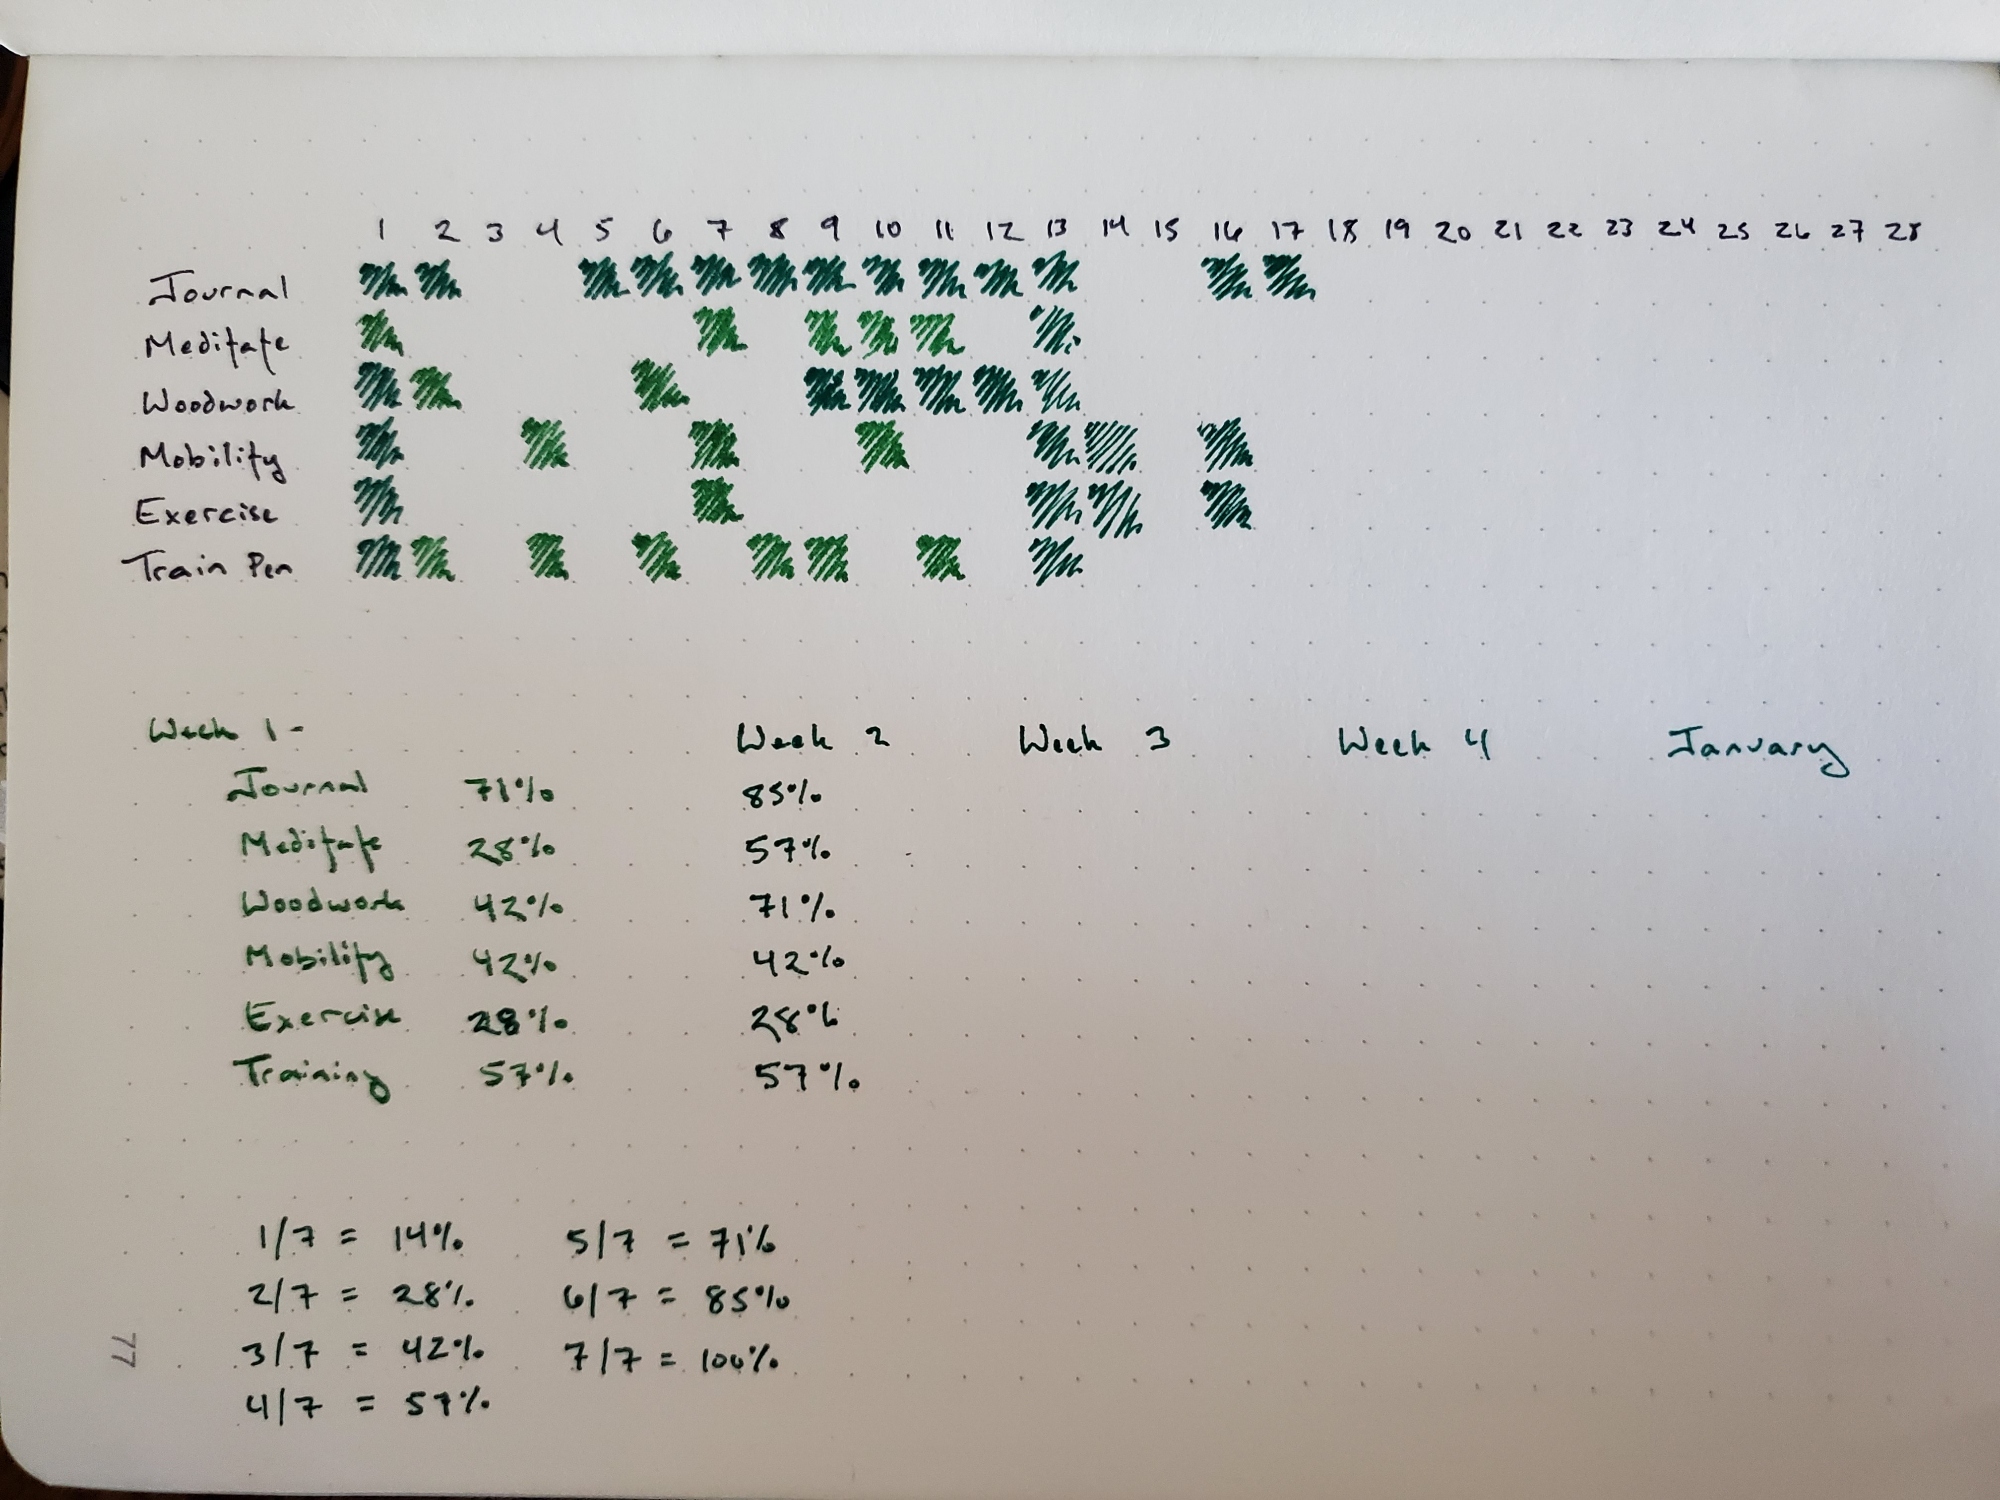 1 2 3 4 5 6 7 8 9 10 11 12 13 14 15 16 17 18 19 20 21 22 23 24 25 26 27 28
Journal
Meditate
Woodwork
Mobility
Exercise
Train Pen
Week 1 - Week 2 Week 3 Week 4 January
Journal 71% 85%
Meditate 28% 57%
Woodwork 42% 71%
Mobility 42% 42%
Exercise 28% 28%
Training 57% 57%
1/7 = 14% 5/7 = 71%
2/7 = 28% 6/7 = 85%
3/7 = 42% 7/7 = 100%
4/7 = 57%
77